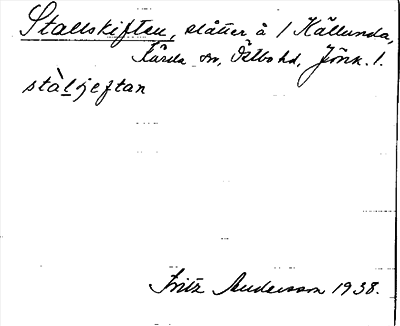 Stallskiften, slåtter å 1 Källunda,
Kärda sn, Östbo hd, Jönk. l.
stàljeftan
Fritz Andersson 1938.